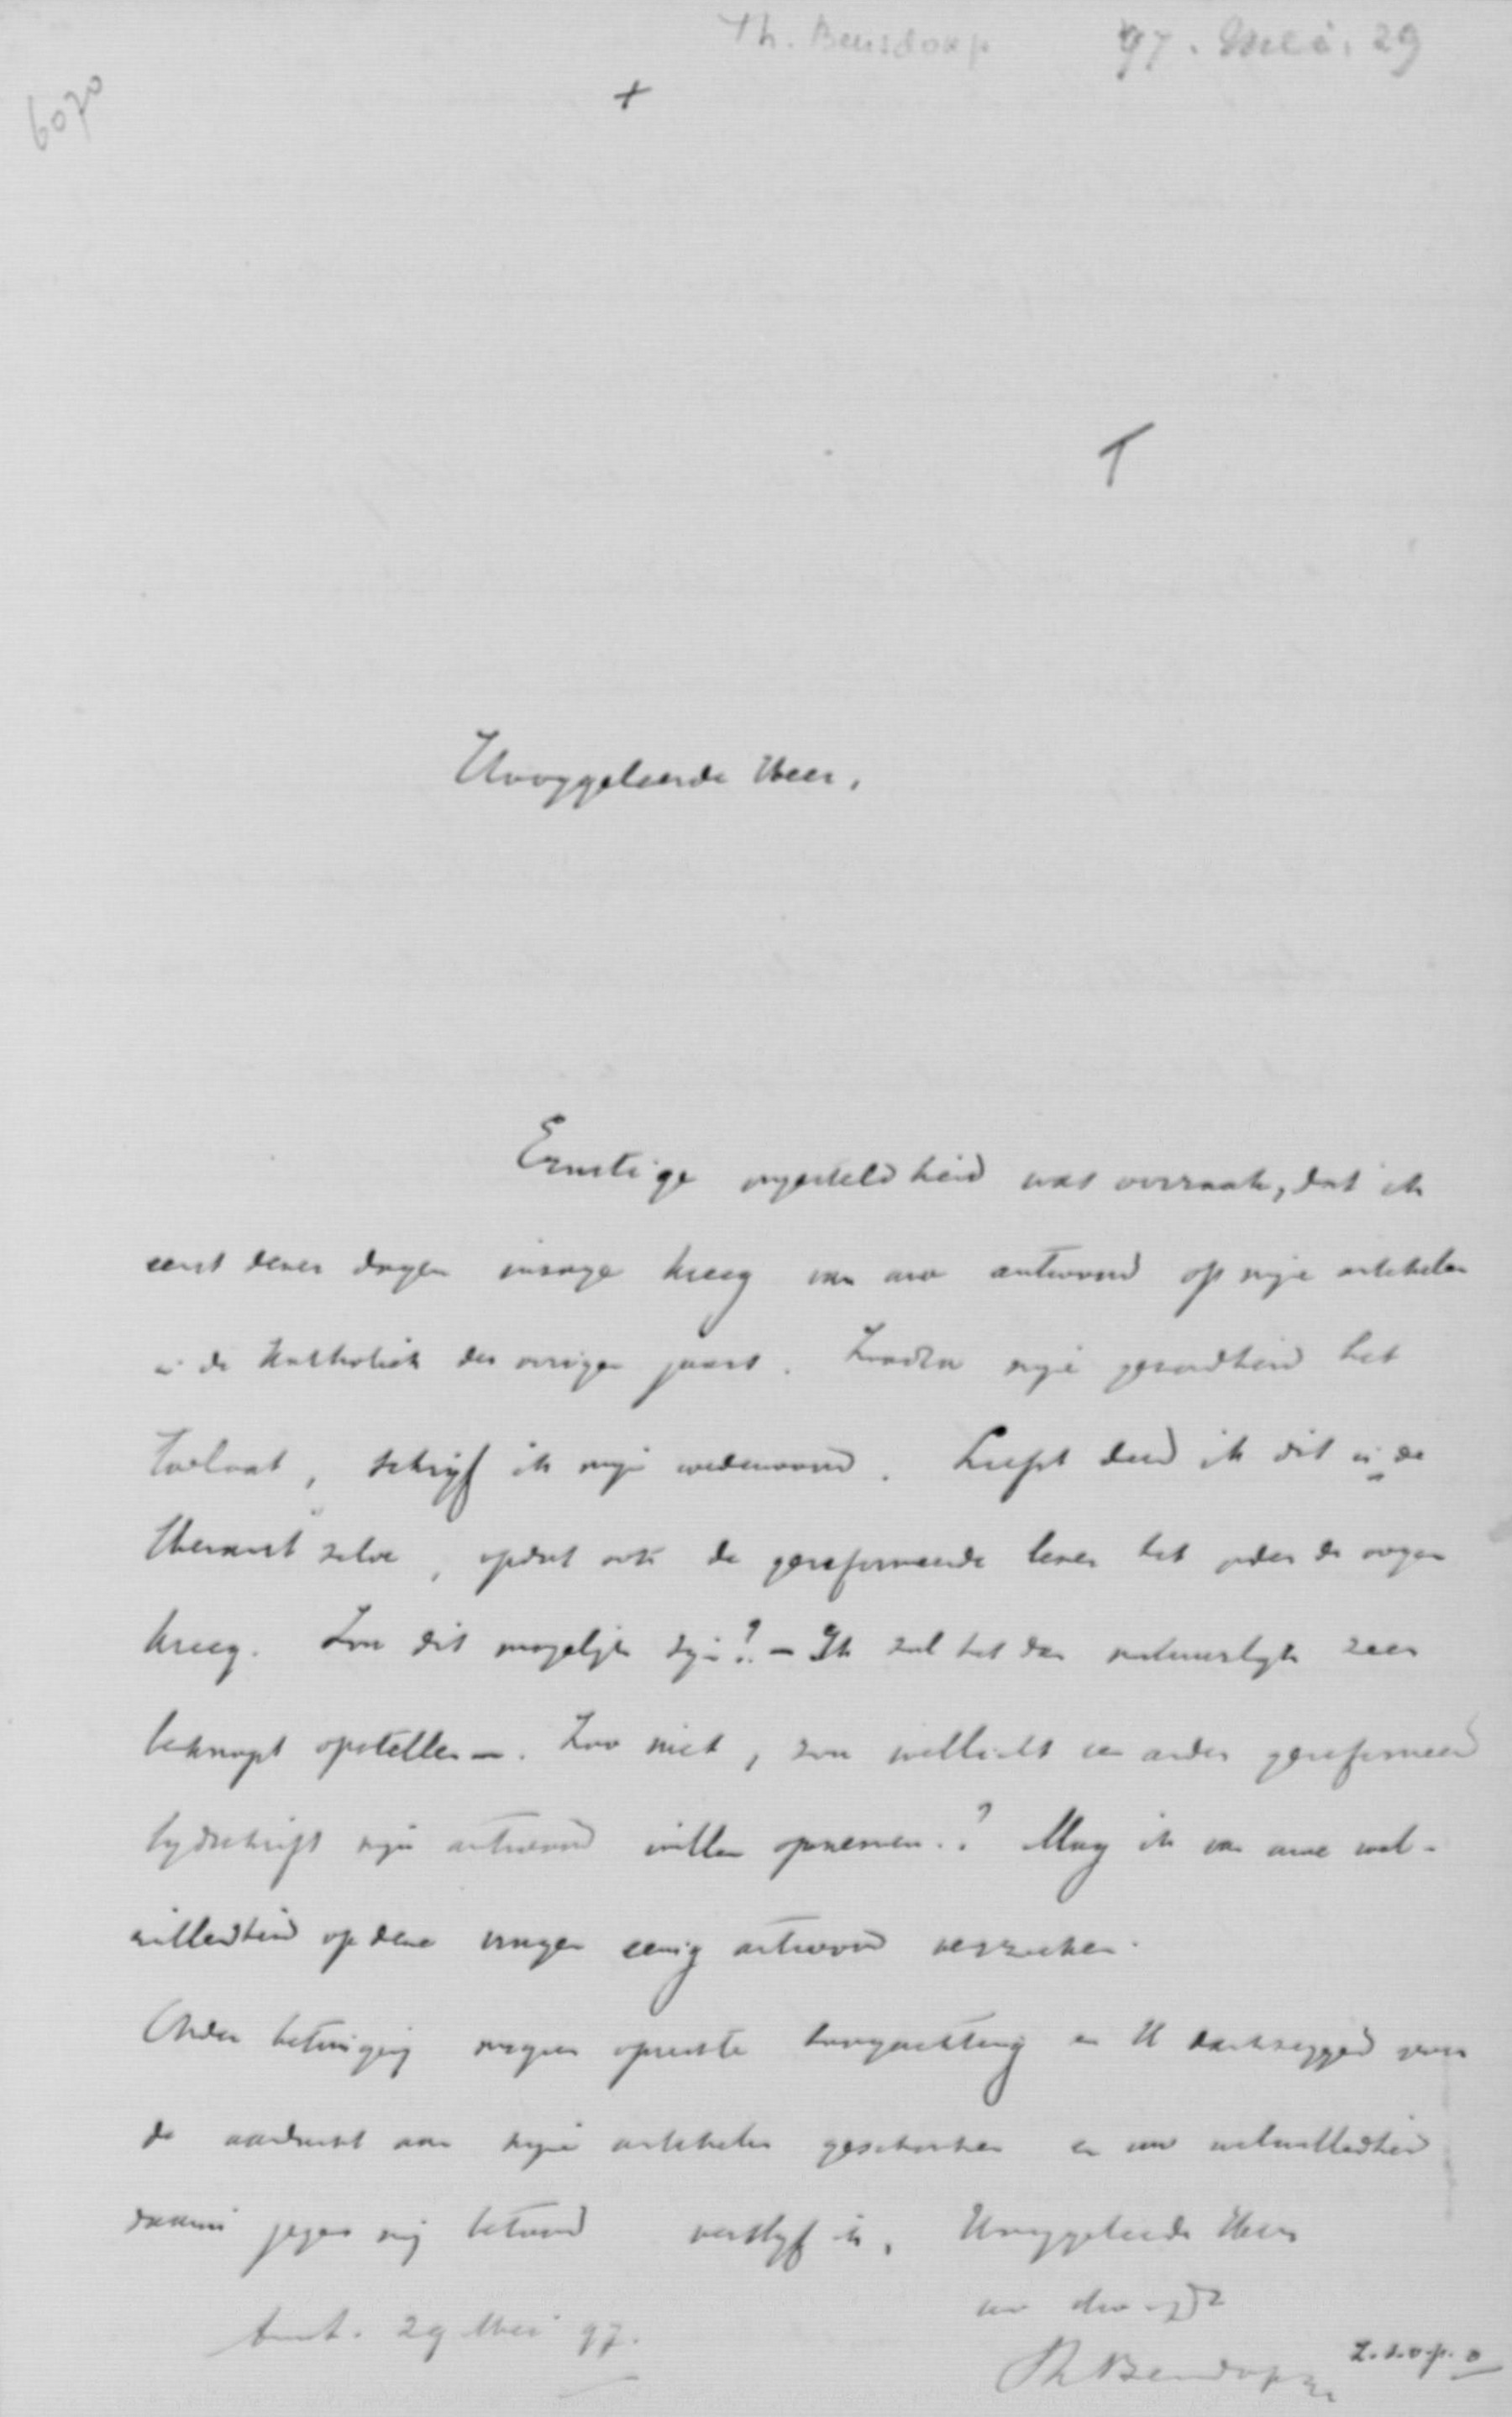 Th. Bensdorp 97. Mei. 29
6070
+
T
Hooggeleerde Heer,
Ernstige ongesteldheid was oorzaak, dat ik
eerst dezer dagen inzage kreeg van uw antwoord op mijne artikelen
in de Katholiek des vorigen jaars. Zoodra mijn gezondheid het
toelaat, schrijf ik mijn wederwoord. Liefst deed ik dit in de
Heraut zelve, opdat ook de gereformeerde lezer het onder de oogen
kreeg. Zou dit mogelijk zijn? – Ik zal het dan natuurlijk zeer
beknopt opstellen –. Zoo niet, zou wellicht een ander gereformeerd
tijdschrift mijn antwoord willen opnemen? Mag ik van uwe wel-
willendheid op deze vragen eenig antwoord verzoeken.
Onder betuiging mijner oprechte hoogachting en U dankzeggend voor
de aandacht aan mijne artikelen geschonken en uw welwillendheid
daarin jegens mij betoond verblijf ik, Hooggeleerde Heer
uw dw. dr
Amst. 29 Mei 97.
Th Bensdorp